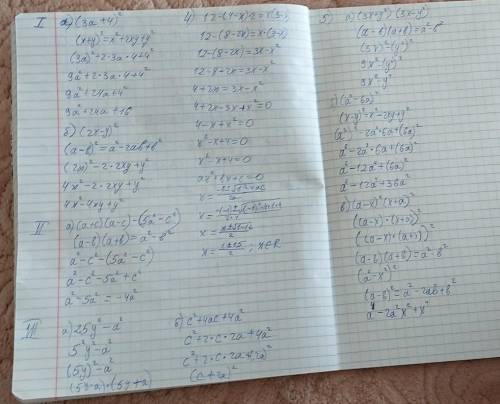 I а) (3a+4)²
(x+y)² = x²+2xy+y²
(3a)²+2·3a·4+4²
9a²+2·3a·4+4²
9a²+24a+4²
9a²+24a+16
б) (2x-y)²
(a-b)² = a²-2ab+b²
(2x)²-2·2xy+y²
4x²-2·2xy+y²
4x²-4xy+y²
II а) (a+c)(a-c)-(5a²-c²)
(a-b)(a+b) = a²-b²
a²-c²-(5a²-c²)
a²-c²-5a²+c²
a²-5a² = -4a²
III а) 25y²-a²
5²y²-a²
(5y)²-a²
(5y-a)·(5y+a)
б) c²+4ac+4a²
c²+2·c·2a+4a²
c²+2·c·2a+(2a)²
(c+2a)²
4) 12-(4-x)·2=x(3-x)
12-(8-2x)=x·(3-x)
12-(8-2x)=3x-x²
12-8+2x=3x-x²
4+2x=3x-x²
4+2x-3x+x²=0
4-x+x²=0
x²-x+4=0
x²-x+4=0
ax²+bx+c=0
x=
x=
x=
x= ; x∉R
5) а) (3x+y²)·(3x-y²)
(a-b)(a+b)=a²-b²
(3x)²-(y²)²
9x²-(y²)²
9x²-y⁴
(a³-6a)²
(x-y)²=x²-2xy+y²
(a³)²-2a³·6a+(6a)²
a⁶-2a³·6a+(6a)²
a⁶-12a⁴+(6a)²
a⁶-12a⁴+36a²
в) (a-x)²(x+a)²
((a-x)·(x+a))²
((a-x)·(a+x))²
(a-b)(a+b)=a²-b²
(a²-x²)²
(a-b)²=a²-2ab+b²
a⁴-2a²x²+x⁴